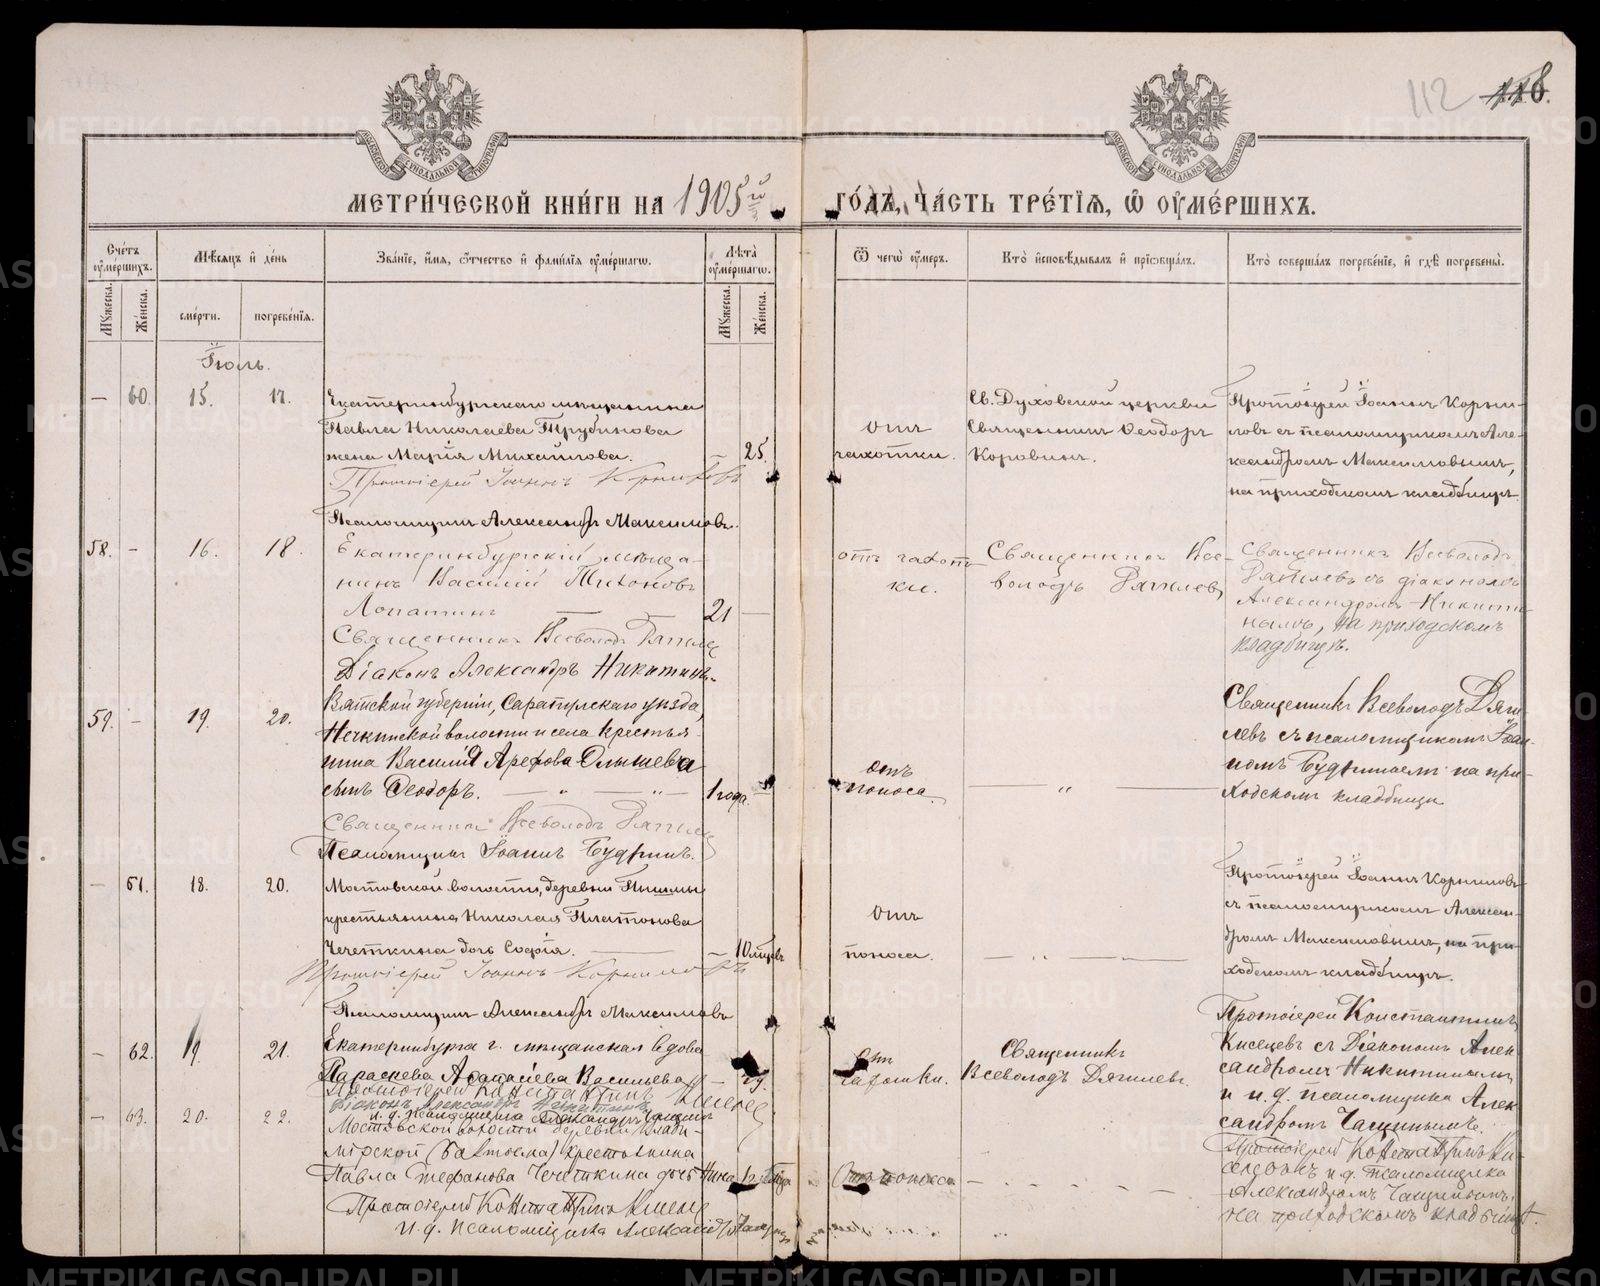 112 118.
МОСКОВСКОЙ СѴНОДАЛЬНОЙ ТИПОГРАФІИ
МОСКОВСКОЙ СѴНОДАЛЬНОЙ ТИПОГРАФІИ
МЕТРИ́ЧЕСКОЙ КНИ́ГИ НА 1905й ГО́ДЪ, ЧА́СТЬ ТРЕ́ТІЯ, Ѡ҆ ОУ҆МЕ́РШИХЪ.
Сче́тъ оу҆ме́ршихъ.
Мѣ́сяцъ и҆ де́нь
Зва́ніе, и҆́мя, ѻ҆́тчество и҆ фами́лія оу҆ме́ршагѡ.
Лѣта̀ оу҆ме́ршагѡ.
Ѿ чегѡ̀ оу҆́меръ.
Кто̀ и҆сповѣ́дывалъ и҆ прїѡбща́лъ.
Кто̀ соверша́лъ погребе́ніе, и҆ гдѣ̀ погребены̀.
Му́жеска. Же́нска. сме́рти. погребе́нія. Му́жеска. Же́нска.
Іюль.
— 60. 15. 17.
Екатеринбургскаго мѣщанина
Павла Николаева Трубинова
жена Марія Михайлова. — 25.
Протоіерей Іоаннъ Корниловъ
Псаломщикъ Александръ Максимовъ.
отъ
чахотки.
Св. Духовской церкви
Священникъ Ѳеодоръ
Коровинъ.
Протоіерей Іоаннъ Корни-
ловъ съ псаломщикомъ Але-
ксандромъ Максимовымъ,
на приходскомъ кладбищѣ.
58. — 16. 18.
Екатеринбургскій мѣща-
нинъ Василій Тихоновъ
Лопатинъ — — 21 —
Священникъ Всеволодъ Дягилевъ
Діаконъ Александръ Никитинъ.
отъ чахот-
ки.
Священникъ Все-
володъ Дягилевъ
Священникъ Всеволодъ
Дягилевъ съ діакономъ
Александромъ Никити-
нымъ, на приходскомъ
кладбищѣ.
59. — 19. 20.
Вятской губерніи, Сарапульскаго уѣзда,
Нечкинской волости и села крестья-
нина Василія Арефова
сынъ Ѳеодоръ. — „ — „ — 1 года —
Священникъ Всеволодъ Дягилевъ
Псаломщикъ Іоаннъ Будринъ.
отъ
поноса.
— „ —
Священникъ Всеволодъ Дяги-
левъ съ псаломщикомъ Іоан-
номъ Будринымъ на при-
ходскомъ кладбищѣ
— 61. 18. 20.
Мостовской волости, деревни Пышмы
крестьянина Николая Платонова
Чечеткина дочь Софія. — — 10 мѣсцв
Протоіерей Іоаннъ Корниловъ
Псаломщикъ Александръ Максимовъ
отъ
поноса.
— „ — —
Протоіерей Іоаннъ Корниловъ
съ псаломщикомъ Алексан-
дромъ Максимовымъ, на при-
ходскомъ кладбищѣ.
— 62. 19. 21.
Екатеринбурга г. мѣщанская вдова
Параскева Аѳанасіева Васильева —
Протоіерей Константинъ
Діаконъ Александръ Никитинъ
и. д. псаломщика Александръ Чащинъ
отъ
чахотки.
Священникъ
Всеволодъ Дягилевъ.
Протоіерей Константинъ
Киселевъ съ Діакономъ Алек
сандромъ Никитинымъ
и и. д. псаломщика Алек
сандромъ Чащинымъ.
— 63. 20. 22.
Мостовской волости деревни Влади-
мірской (Балтыма) крестьянина
Павла Стефанова Чечеткина дочь Нина
Протоіерей Константинъ
и. д. псаломщика Александръ Чащинъ
Отъ поноса
— — — —
Протоіерей Константинъ Ки-
селевъ и. д. псаломщика
Александромъ Чащинымъ,
на приходскомъ кладбищѣ.